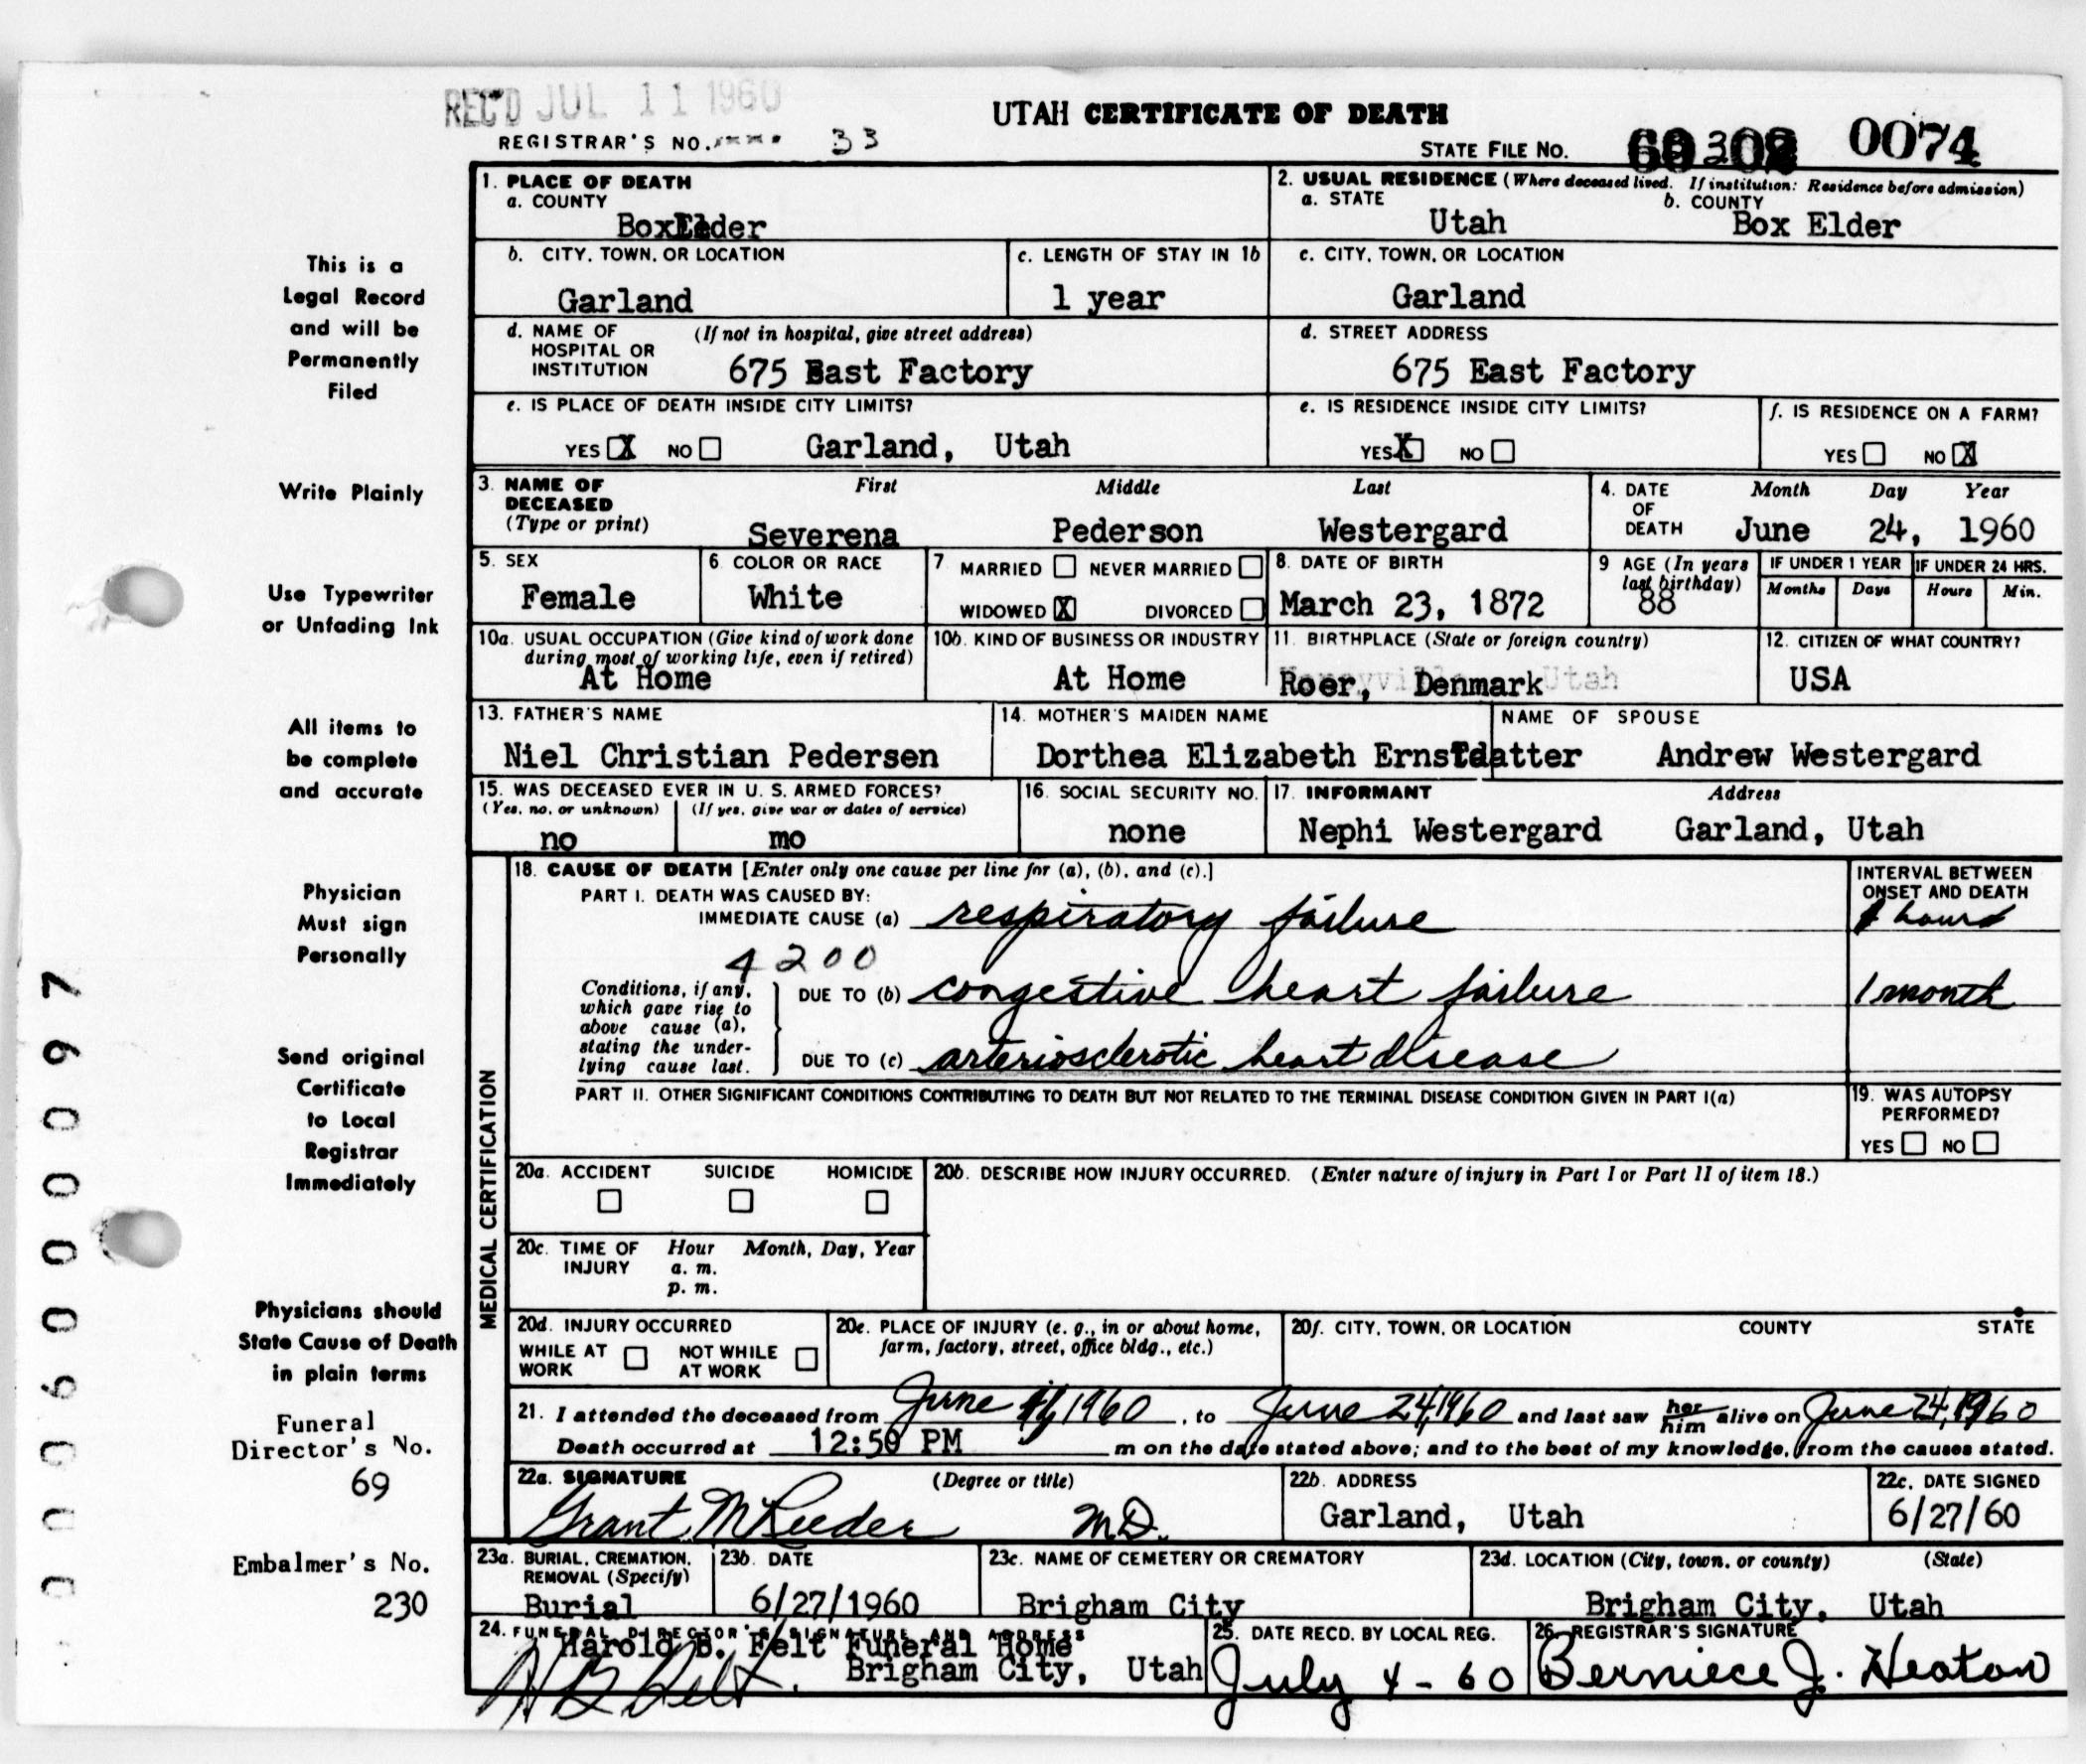 REC'D JUL 11 1960
UTAH CERTIFICATE OF DEATH
REGISTRAR'S NO. 33
STATE FILE No. 0074
1. PLACE OF DEATH
a. COUNTY
Box Elder
2. USUAL RESIDENCE (Where deceased lived. If institution: Residence before admission)
a. STATE b. COUNTY
Utah Box Elder
b. CITY, TOWN, OR LOCATION
Garland
c. LENGTH OF STAY IN 1b
1 year
c. CITY, TOWN, OR LOCATION
Garland
d. NAME OF HOSPITAL OR INSTITUTION (If not in hospital, give street address)
675 East Factory
d. STREET ADDRESS
675 East Factory
e. IS PLACE OF DEATH INSIDE CITY LIMITS?
YES X NO Garland, Utah
e. IS RESIDENCE INSIDE CITY LIMITS?
YES X NO
f. IS RESIDENCE ON A FARM?
YES NO X
3. NAME OF DECEASED (Type or print)
First Middle Last
Severena Pederson Westergard
4. DATE OF DEATH Month Day Year
June 24, 1960
5. SEX
Female
6. COLOR OR RACE
White
7 MARRIED NEVER MARRIED
WIDOWED X DIVORCED
8. DATE OF BIRTH
March 23, 1872
9 AGE (In years last birthday)
88
IF UNDER 1 YEAR
Months Days
IF UNDER 24 HRS.
Hours Min.
10a. USUAL OCCUPATION (Give kind of work done during most of working life, even if retired)
At Home
10b. KIND OF BUSINESS OR INDUSTRY
At Home
11. BIRTHPLACE (State or foreign country)
Roer, Denmark Utah
12. CITIZEN OF WHAT COUNTRY?
USA
13. FATHER'S NAME
Niel Christian Pedersen
14. MOTHER'S MAIDEN NAME
Dorthea Elizabeth Ernstdatter
NAME OF SPOUSE
Andrew Westergard
15. WAS DECEASED EVER IN U. S. ARMED FORCES?
(Yes, no, or unknown) (If yes, give war or dates of service)
no mo
16. SOCIAL SECURITY NO.
none
17. INFORMANT Address
Nephi Westergard Garland, Utah
MEDICAL CERTIFICATION
18. CAUSE OF DEATH [Enter only one cause per line for (a), (b), and (c).]
PART I. DEATH WAS CAUSED BY:
IMMEDIATE CAUSE (a) respiratory failure
INTERVAL BETWEEN ONSET AND DEATH
hours
4200
Conditions, if any, which gave rise to above cause (a), stating the underlying cause last.
DUE TO (b) congestive heart failure 1 month
DUE TO (c) arteriosclerotic heart disease
PART II. OTHER SIGNIFICANT CONDITIONS CONTRIBUTING TO DEATH BUT NOT RELATED TO THE TERMINAL DISEASE CONDITION GIVEN IN PART I(a)
19. WAS AUTOPSY PERFORMED?
YES NO
20a. ACCIDENT SUICIDE HOMICIDE
20b. DESCRIBE HOW INJURY OCCURRED. (Enter nature of injury in Part I or Part II of item 18.)
20c. TIME OF INJURY Hour Month, Day, Year
a. m.
p. m.
20d. INJURY OCCURRED
WHILE AT WORK NOT WHILE AT WORK
20e. PLACE OF INJURY (e. g., in or about home, farm, factory, street, office bldg., etc.)
20f. CITY, TOWN, OR LOCATION COUNTY STATE
21. I attended the deceased from June 1960, to June 24, 1960 and last saw her him alive on June 24, 1960
Death occurred at 12:50 PM m on the date stated above; and to the best of my knowledge, from the causes stated.
22a. SIGNATURE (Degree or title)
Grant M Reeder M.D.
22b. ADDRESS
Garland, Utah
22c. DATE SIGNED
6/27/60
23a. BURIAL, CREMATION, REMOVAL (Specify)
Burial
23b. DATE
6/27/1960
23c. NAME OF CEMETERY OR CREMATORY
Brigham City
23d. LOCATION (City, town, or county) (State)
Brigham City, Utah
24. FUNERAL DIRECTOR'S SIGNATURE AND ADDRESS
Harold B. Felt Funeral Home
Brigham City, Utah
H B Felt.
25. DATE RECD. BY LOCAL REG.
July 4-60
26. REGISTRAR'S SIGNATURE
Berniece J. Heaton
This is a
Legal Record
and will be
Permanently
Filed
Write Plainly
Use Typewriter
or Unfading Ink
All items to
be complete
and accurate
Physician
Must sign
Personally
Send original
Certificate
to Local
Registrar
Immediately
Physicians should
State Cause of Death
in plain terms
Funeral
Director's No.
69
Embalmer's No.
230
0009600097